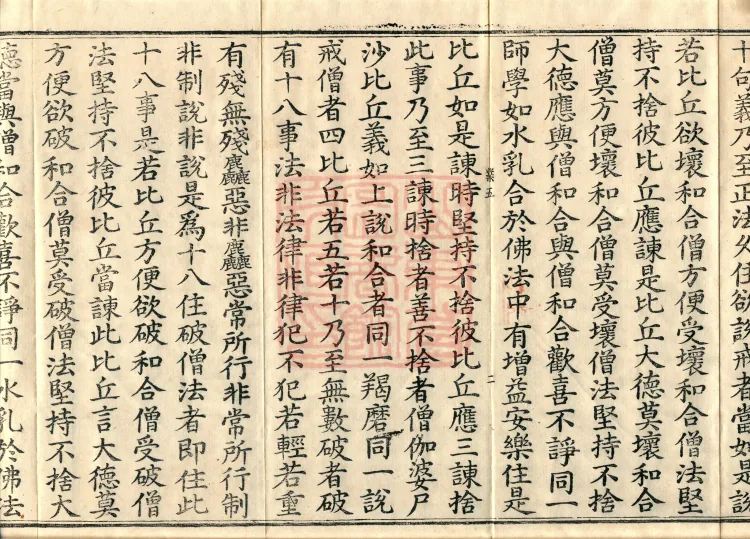 十句義乃至正法久住欲說戒者當如是說
若比丘欲壞和合僧方便受壞和合僧法堅
持不捨彼比丘應諫是比丘大德莫壞和合
僧莫方便壞和合僧莫受壞僧法堅持不捨
大德應與僧和合與僧和合歡喜不諍同一
師學如水乳合於佛法中有增益安樂住是
比丘如是諫時堅持不捨彼比丘應三諫捨
五 二
此事乃至三諫時捨者善不捨者僧伽婆尸
沙比丘義如上說和合者同一羯磨同一說
戒僧者四比丘若五若十乃至無數破者破
有十八事法非法律非律犯不犯若輕若重
有殘無殘麤惡非麤惡常所行非常所行制
非制說非說是爲十八住破僧法者即住此
十八事是若比丘方便欲破和合僧受破僧
法堅持不捨彼比丘當諫此比丘言大德莫
方便欲破和合僧莫受破僧法堅持不捨大
德當與僧和合歡喜不諍同一水乳於佛法